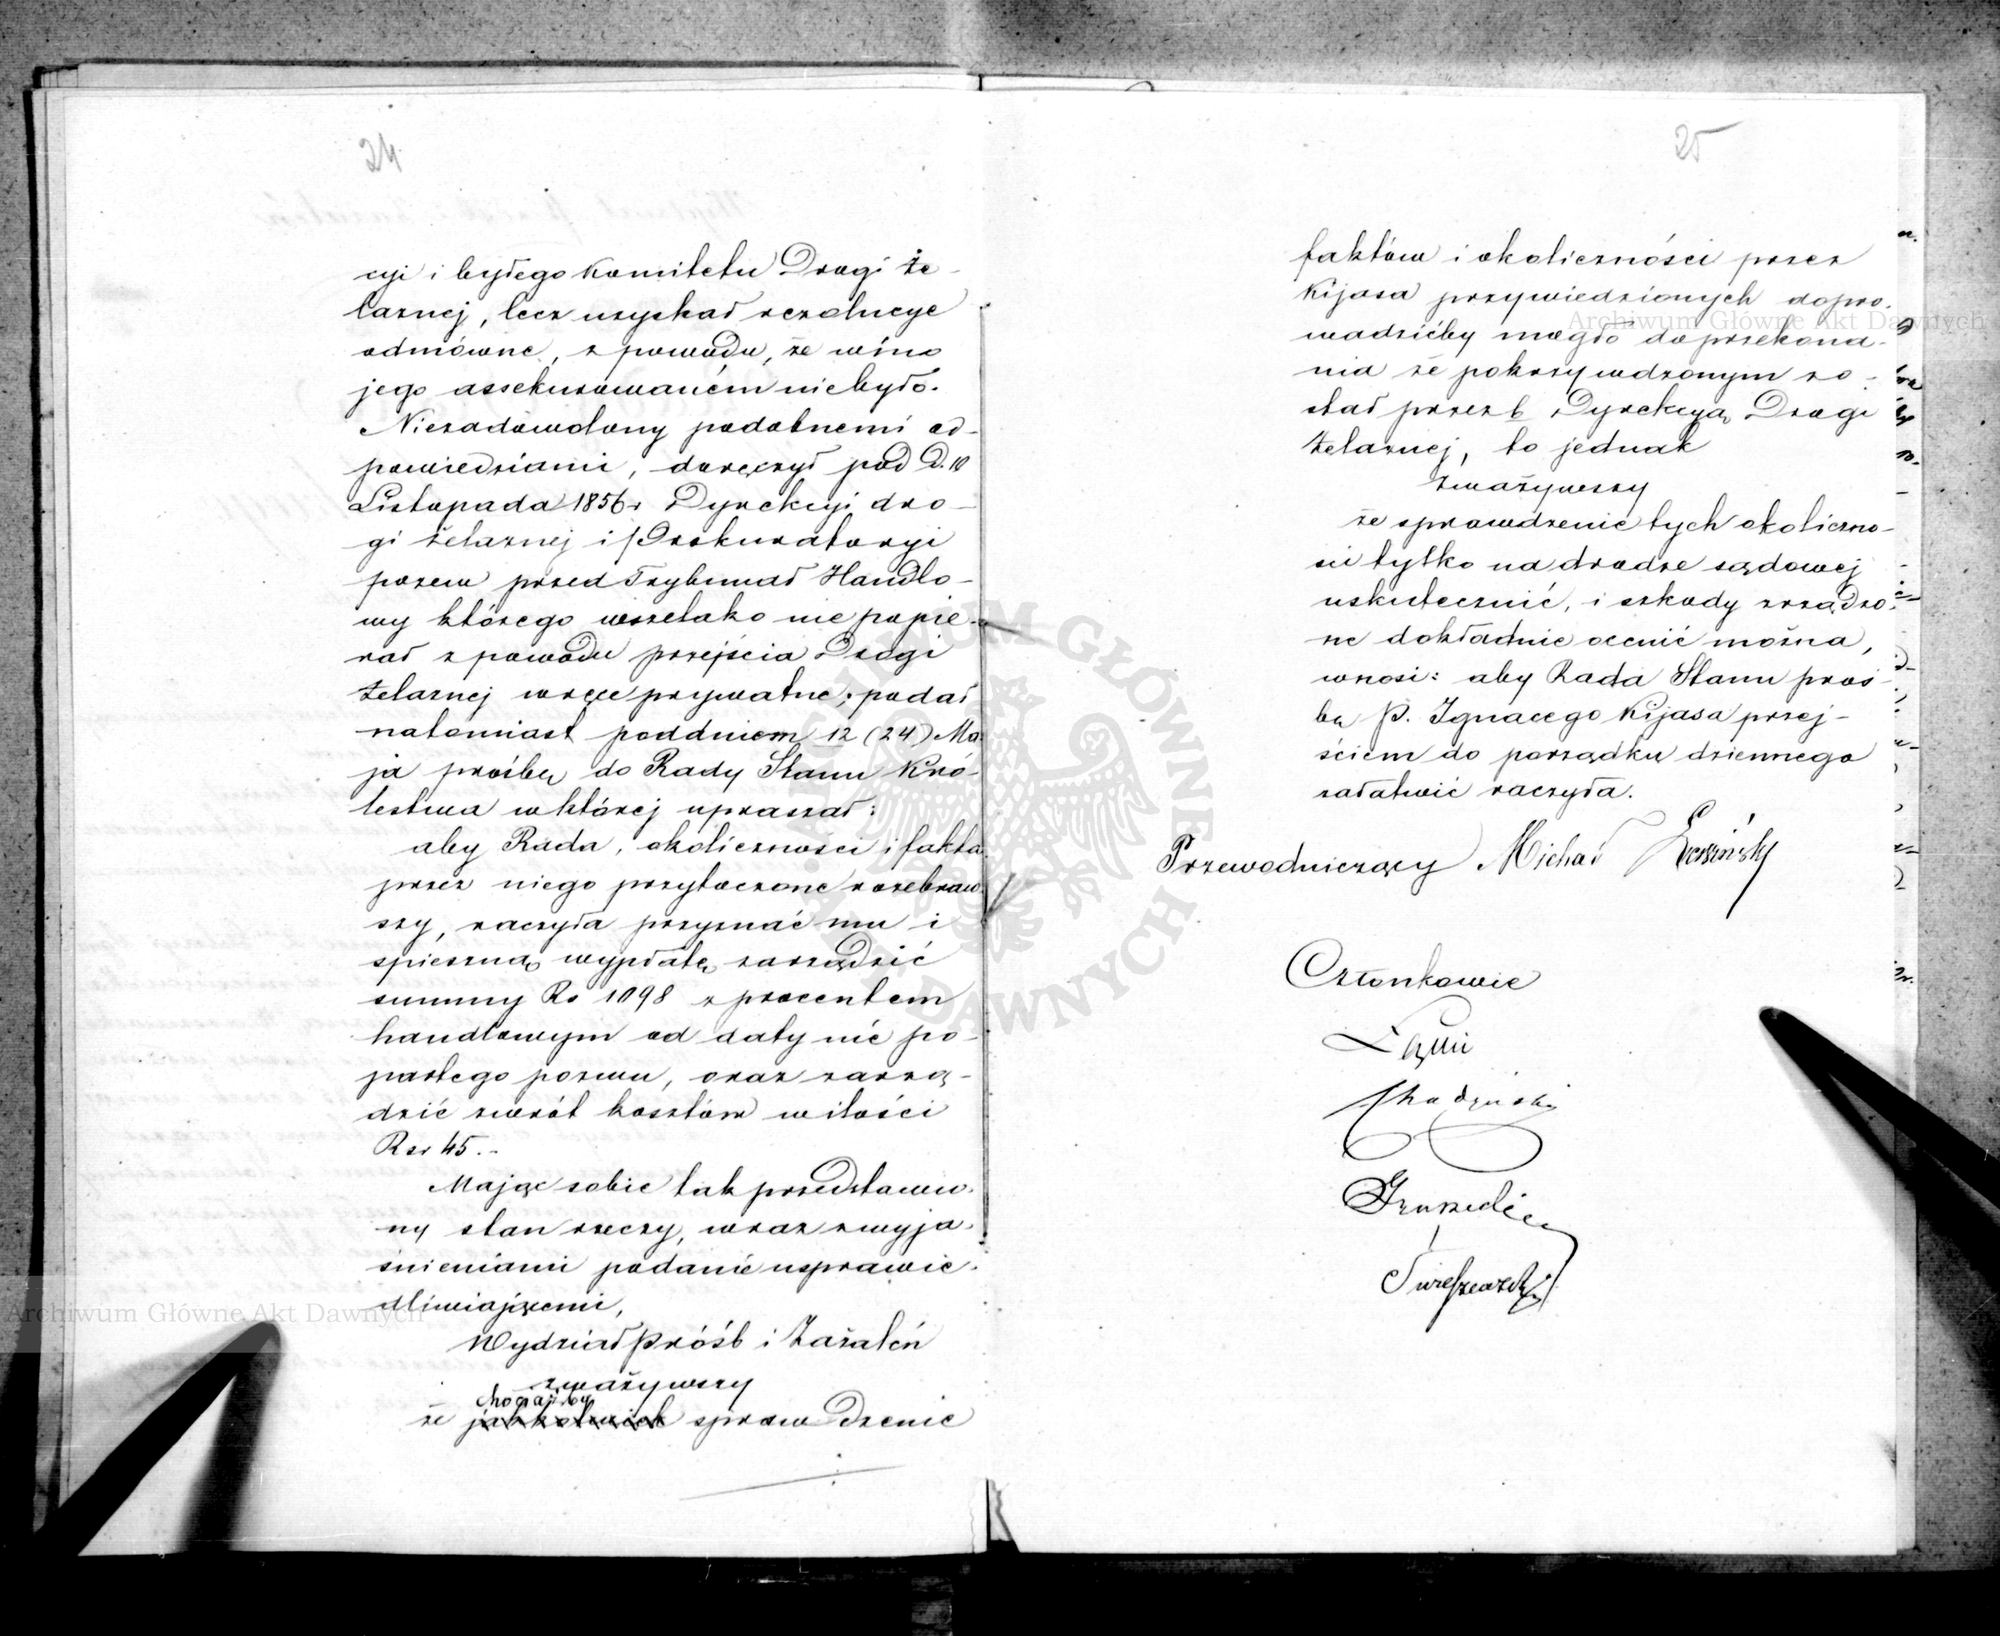 24
cyi i byłego Komitetu Drogi Że-
laznej, lecz uzyskał rezolucye
odmówne, z powodu, że wino
jego assekurowaném niebyło.
Niezadowolony podobnemi od-
powiedziami, doręczył pod D. 10
Listopada 1856 r Dyrekcyi dro-
gi żelaznej i Prokuratoryi
pozew przed Trybunał Handlo-
wy którego wszelako nie popie-
rał z powodu przejścia Drogi
Żelaznej w ręce prywatne; podał
natomiast pod dniem 12 (24) Ma
ja prośbę do Rady Stanu Kró-
lestwa w której upraszał:
aby Rada, okoliczności i fakta
przez niego przytoczone rozebraw
szy, raczyła przyznać mu i
spieszną wypłatę zarządzić
summy Rs 1098 z procentem
handlowym od daty nie po-
partego pozwu, oraz zarzą-
dzić zwrót kosztów w ilości
Rsr 45.-
Mając sobie tak przedstawio-
ny stan rzeczy, wraz z wyja-
śnieniami podanie usprawie-
dliwiającemi,
Wydział Próśb i Zażaleń
zważywszy
chociażby
że jakkolwiek sprawdzenie
25
faktów i okoliczności przez
Kijasa przywiedzionych dopro-
wadzićby mogło do przekona-
nia że pokrzywdzonym zo-
stał przez b Dyrekcyą Drogi
Żelaznej, to jednak
zważywszy
że sprawdzenie tych okoliczno-
ści tylko na drodze sądowej
uskutecznić, i szkody zrządzo-
ne dokładnie ocenić można,
wnosi: aby Rada Stanu proś-
bę P. Ignacego Kijasa przej-
ściem do porządku dziennego
załatwić raczyła.
Przewodniczący Michał
Członkowie
Archiwum Główne Akt Dawnych
Archiwum Główne Akt Dawnych
ARCHIWUM GŁÓWNE AKT DAWNYCH